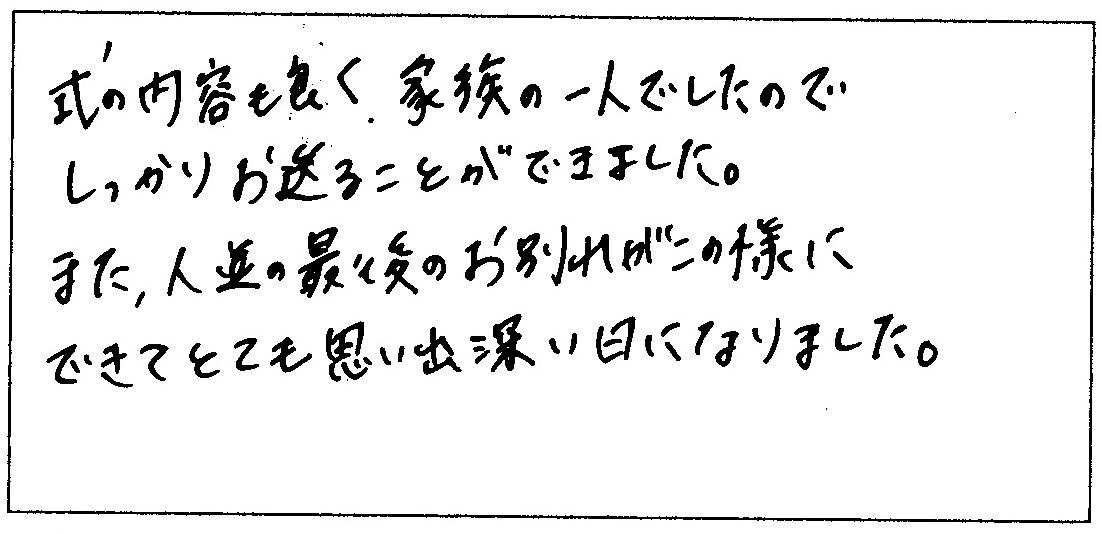 式の内容も良く、家族の一人でしたので
しっかりお送ることができました。
また、人並の最後のお別れがこの様に
できてとても思い出深い日になりました。